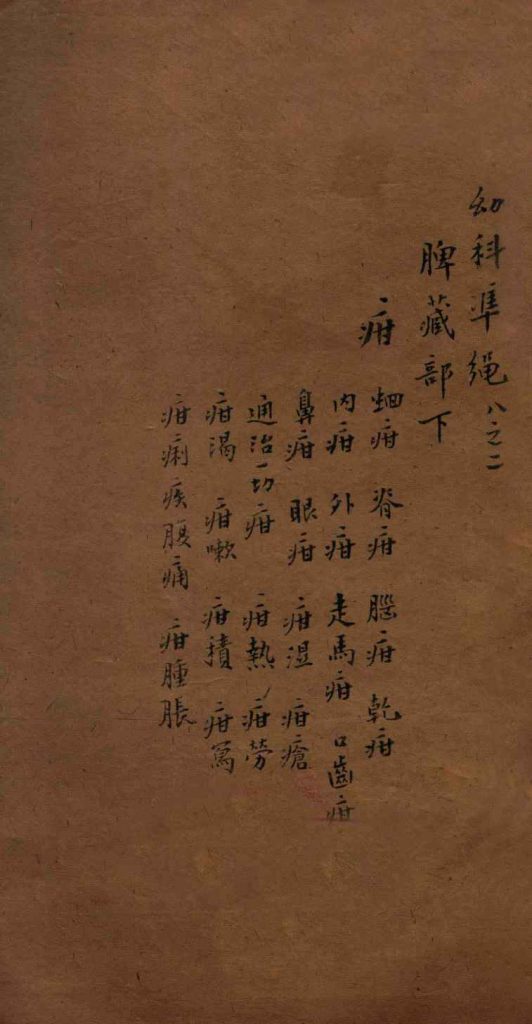 幼科準繩八之二
脾藏部下
疳
蛔疳 脊疳 腦疳 乾疳
內疳 外疳 走馬疳 口齒疳
鼻疳 眼疳 疳濕 疳瘡
通治一切疳 疳熱 疳勞
疳渴 疳嗽 疳積 疳瀉
疳痢疾腹痛 疳腫脹